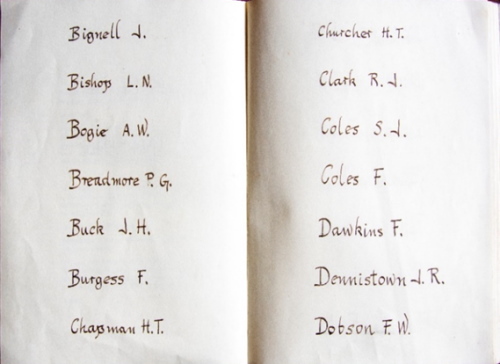 Bignell J.
Bishop L.N.
Bogie A.W.
Breadmore P.G.
Buck J.H.
Burgess F.
Chapman H.T.
Churcher H.T.
Clark R.J.
Coles S.J.
Coles F.
Dawkins F.
Dennistown J.R.
Dobson F.W.